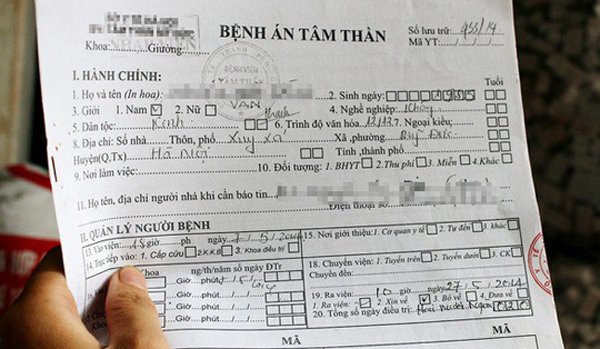 BỆNH ÁN TÂM THẦN
Số lưu trữ 933/14
Khoa: Giường:
Mã YT:
BỆNH VIỆN
TÂM THẦN
I. HÀNH CHÍNH:
Tuổi
1. Họ và tên (In hoa): VĂN
2. Sinh ngày:
3. Giới 1. Nam 2. Nữ
4. Nghề nghiệp:
5. Dân tộc: Kinh 6. Trình độ văn hóa 12/12 7. Ngoại kiều:
8. Địa chỉ: Số nhà Thôn, phố Xã ,phường
Huyện(Q,Tx) Hà Nội Tỉnh ,thành phố
9. Nơi làm việc: 10. Đối tượng: 1. BHYT 2. Thu phí 3. Miễn 4. Khác
11. Họ tên, địa chỉ người nhà khi cần báo tin
Điện thoại số
II. QUẢN LÝ NGƯỜI BỆNH
13. Vào viện: 15 giờ ph 5/2014
14. Trực tiếp vào: 1. Cấp cứu 2. K.K.B 3. Khoa điều trị
15. Nơi giới thiệu: 1. Cơ quan y tế 2. Tự đến 3. khác
Khoa ng/th/năm số ngày ĐTr
Giờ phút
Giờ phút
Giờ phút
18. Chuyển viện: 1. Tuyến trên 2. Tuyến dưới 3. CK
Chuyển đến:
19. Ra viện: 10 giờ 27/5/2014
1. Ra viện: 2. Xin về 3. Bỏ về 4. Đưa về
20. Tổng số ngày điều trị: Hai mươi ngày 020
MÃ
MÃ